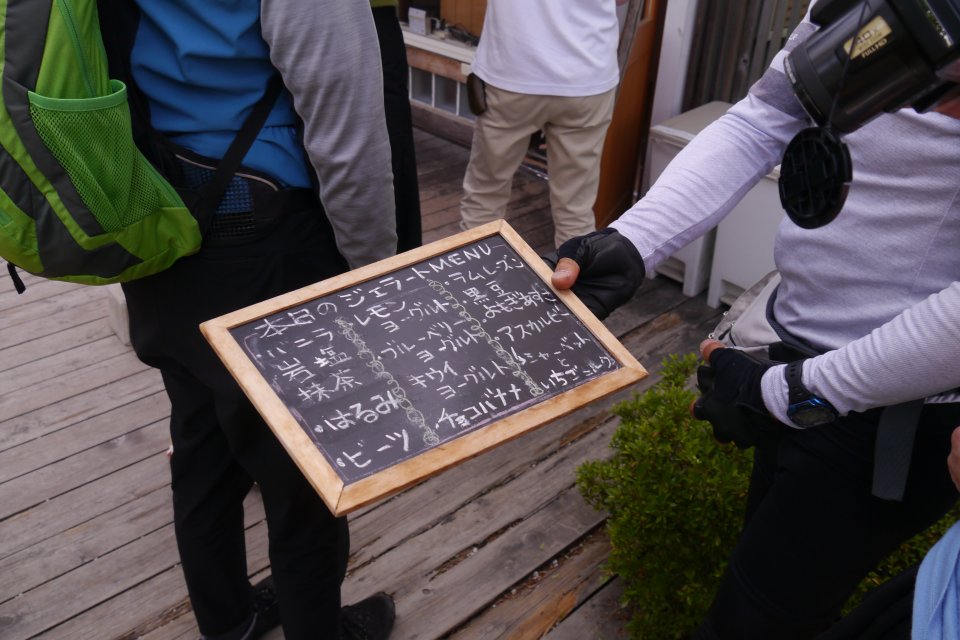 本日のジェラートMENU
バニラ
岩塩
抹茶
・はるみ
・ビーツ
レモン
ヨーグルト
・ブルーベリー
ヨーグルト
・キウイ
ヨーグルト
・チョコバナナ
・ラムレーズン
・黒豆
・よもぎあずき
・アスカルビー
シャーベット
・いちごミルク
FULL HD